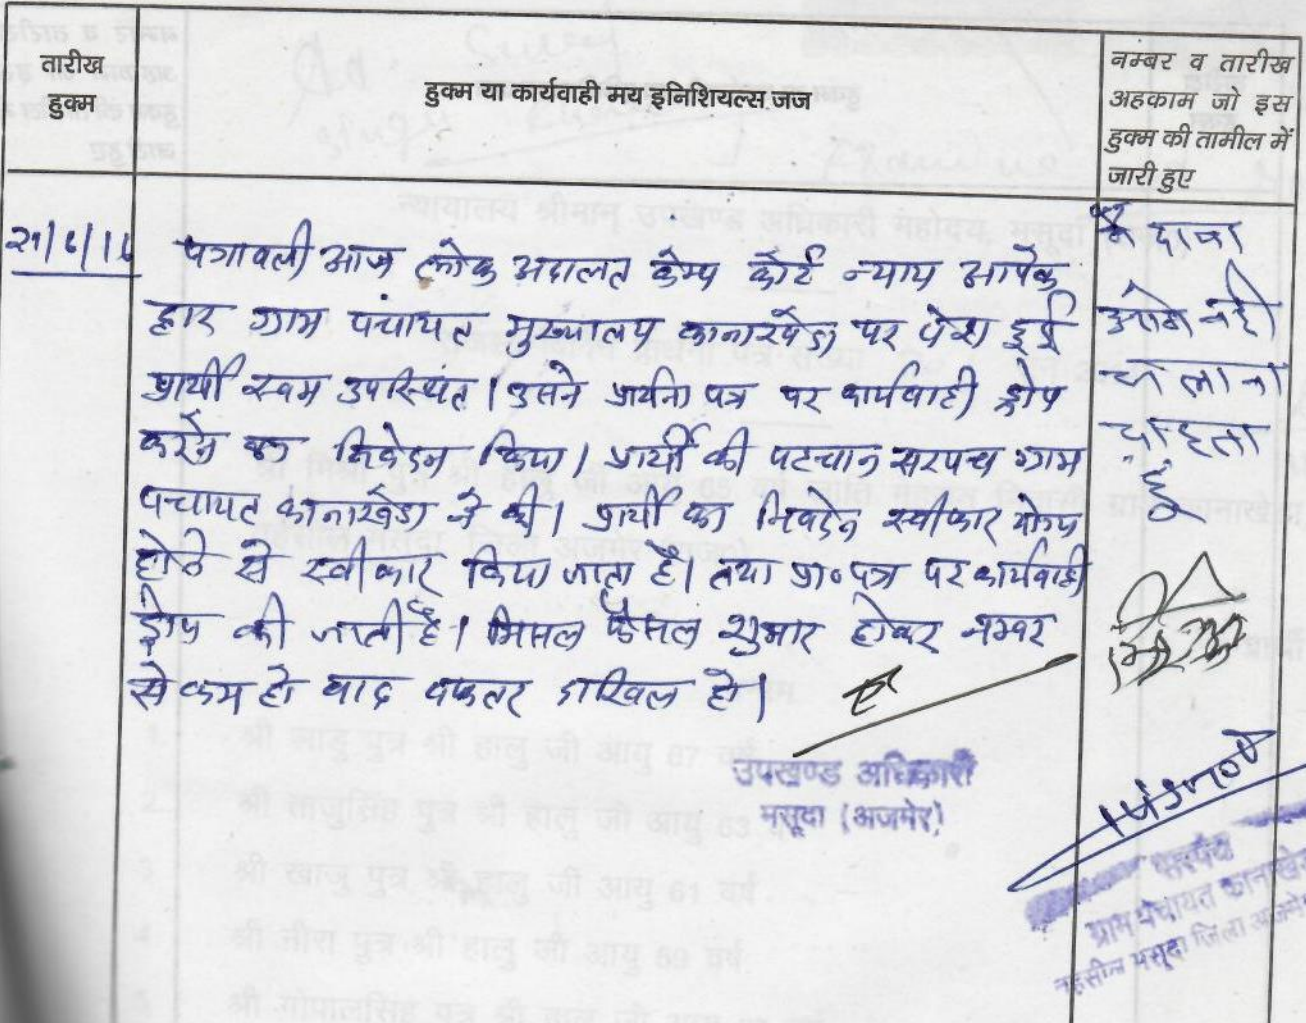 तारीख
हुक्म
हुक्म या कार्यवाही मय इनिशियल्स जज
नम्बर व तारीख
अहकाम जो इस
हुक्म की तामील में
जारी हुए
पत्रावली आज लोक अदालत केम्प कोर्ट न्याय आपके
द्वार ग्राम पंचायत मुख्यालय कानाखेडा पर पेश हुई
प्रार्थी स्वयं उपस्थित । उसने प्रार्थना पत्र पर कार्यवाही ड्रोप
करने का निवेदन किया। प्रार्थी की पहचान सरपंच ग्राम
पंचायत कानाखेडा ने की। प्रार्थी का निवदेन स्वीकार योग्य
होने से स्वीकार किया जाता है। तथा प्रा० पत्र पर कार्यवाही
ड्रोप की जाती है। मिसल फैसल शुमार होकर नम्बर
से कम हो बाद दफ्तर दाखिल हो।
दावा
आगे नही
चलाना
चाहता
हूँ
उपखण्ड अधिकारी
मसूदा (अजमेर)
सरपंच
ग्राम पंचायत कानाखेडा
तहसील मसूदा जिला अजमेर